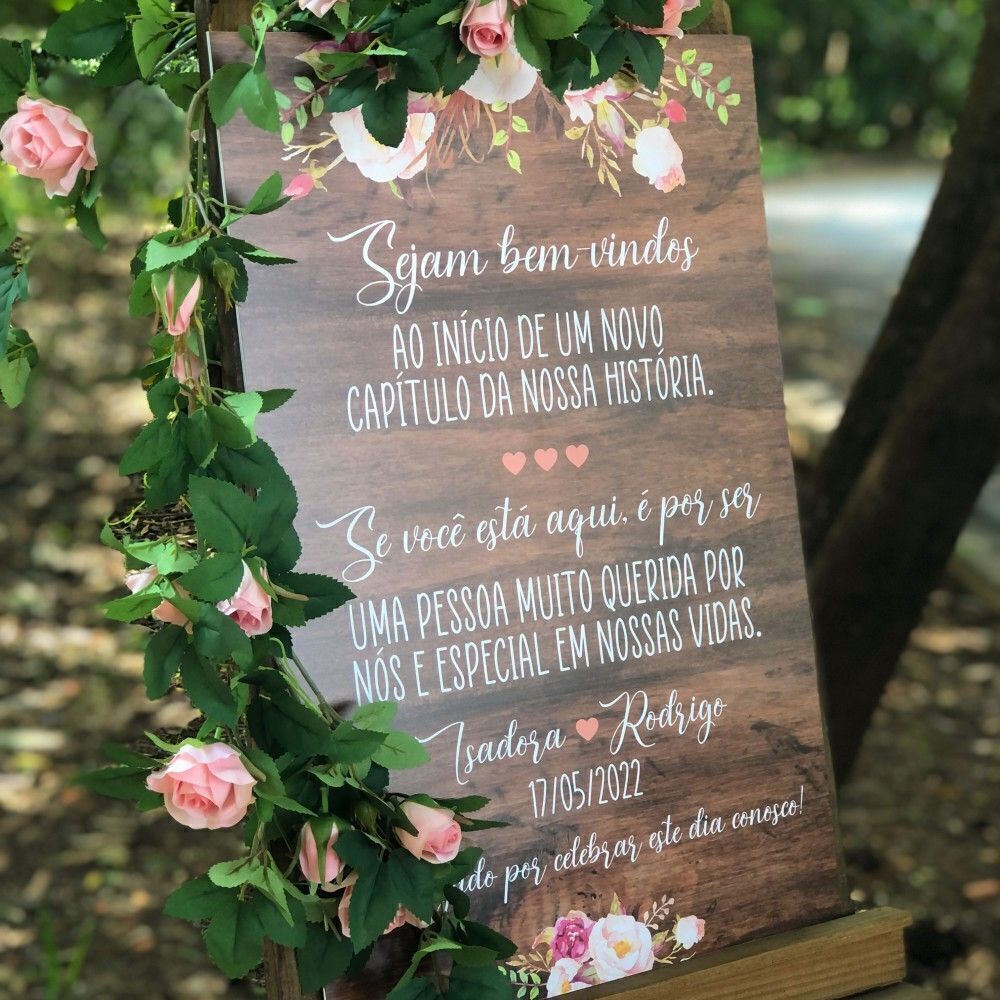 Sejam bem-vindos
AO INÍCIO DE UM NOVO
CAPÍTULO DA NOSSA HISTÓRIA.
Se você está aqui, é por ser
UMA PESSOA MUITO QUERIDA POR
NÓS E ESPECIAL EM NOSSAS VIDAS.
Isadora Rodrigo
17/05/2022
por celebrar este dia conosco!